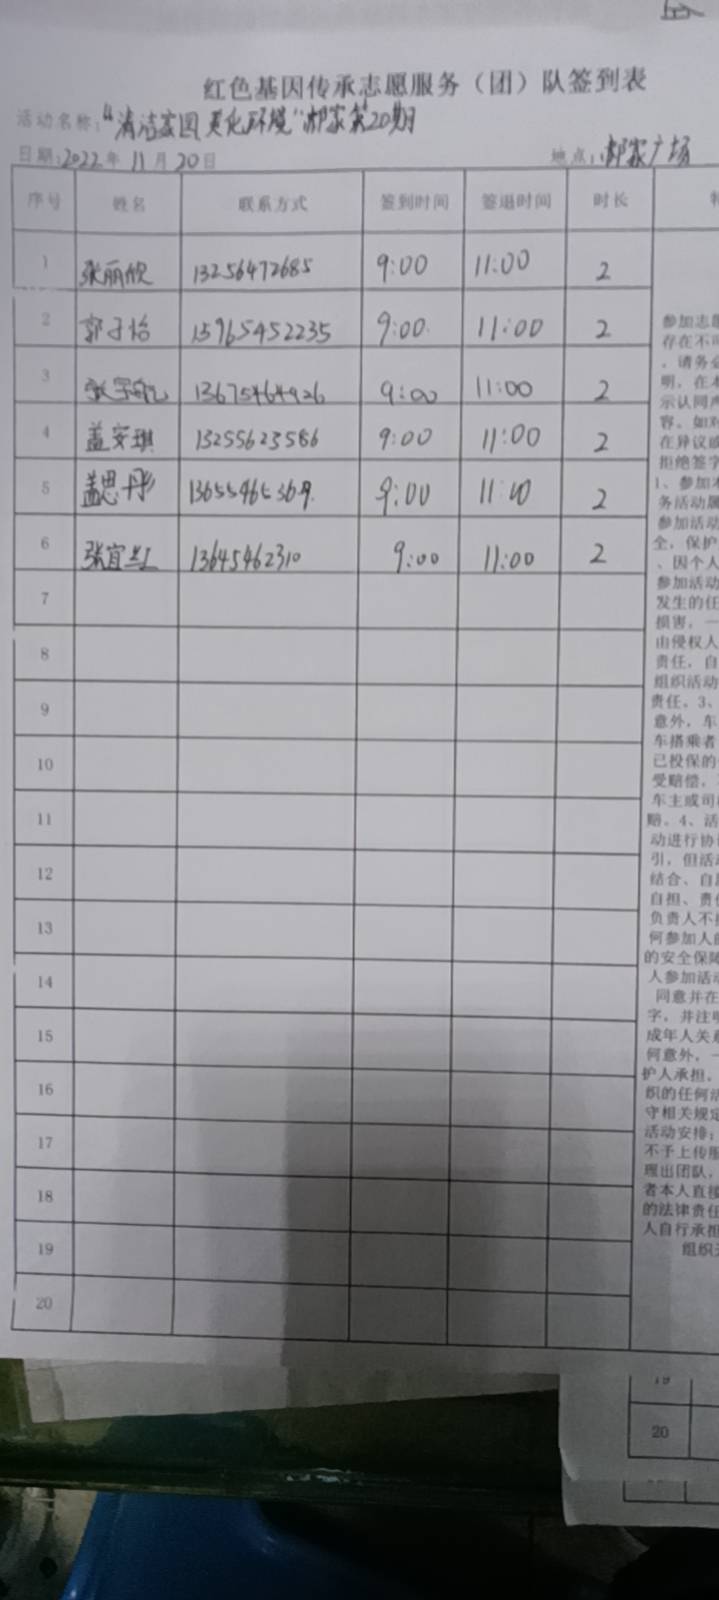 红色基因传承志愿服务（团）队签到表
活动名称："清洁家园 美化环境"郝家第20期
日期：2022年 11月 20日 地点：郝家广场
序号 姓名 联系方式 签到时间 签退时间 时长
1 张丽欣 13256472685 9:00 11:00 2
2 郭子怡 15965452235 9:00 11:00 2
3 张宇航 13675464926 9:00 11:00 2
4 盖安琪 13255623586 9:00 11:00 2
5 盖思彤 9:00 11:00 2
6 张宜 13645462310 9:00 11:00 2
7
8
9
10
11
12
13
14
15
16
17
18
19
20
参加志愿
存在不可
，请务必
明，在本
示认同
容。如对
在异议或
拒绝签字
1、参加本
务活动属
参加活动
全，保护
、因个人
参加活动
发生的任
损害，一
由侵权人
责任，自
组织活动
责任。3、
意外，车
车搭乘者
已投保的
受赔偿，
车主或司
赔。4、活
动进行协
引，但活动
结合、自愿
自担、责任
负责人不
何参加人
的安全保障
人参加活动
同意并在
字，并注明
成年人关系
何意外，一
护人承担。
织的任何活
守相关规定
活动安排；
不予上传服
理出团队，
者本人直接
的法律责任
人自行承担
组织
19
20